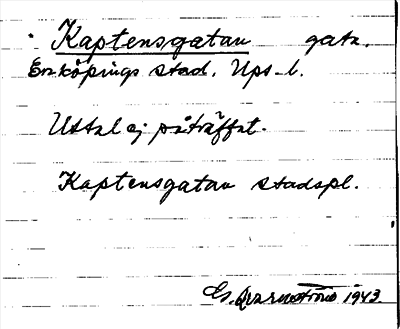 Kaptensgatan gata.
Enköpings stad. Ups. l.
Uttal ej påträffat.
Kaptensgatan stadspl.
1943.